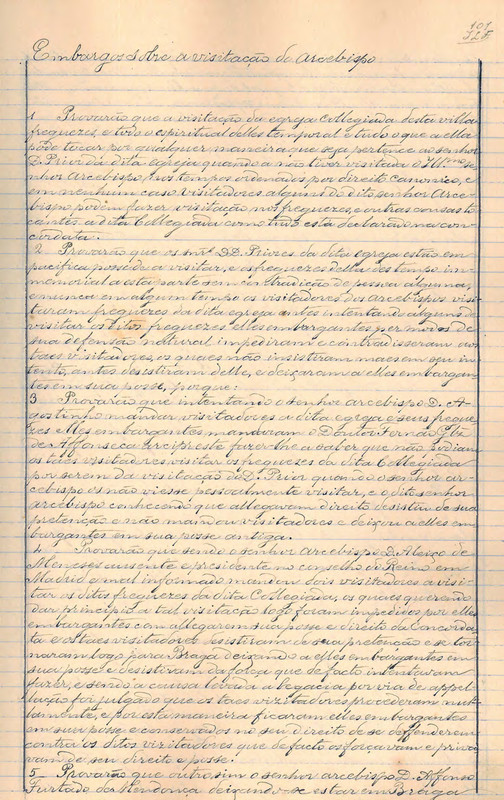 101
Embargos sobre a visitação do arcebispo
1 Provarão que a visitação da egreja collegiada desta villa
freguezes, e todo o espiritual delles temporal e tudo o que a ella
póde tocar por qualquer maneira que seja pertence ao senhor
D. Prior da dita egreja quando a não tiver visitado o Ill.mo se-
nhor Arcebispo, nos tempos ordenados por direito canonico, e
em nenhum caso visitadores alguns do dito senhor Arce-
bispo pódem fazer visitação nos freguezes, e outras cousas to-
cantes á dita Collegiada como tudo está declarado na con-
cordata.
2 Provarão que os DD. Priores da dita egreja estão em
pacifica posse de a visitar, e os freguezes della des tempo im-
memorial a esta parte sem contradição de pessoa alguma,
e nunca em algum tempo os visitadores dos arcebispos visi-
taram freguezes da dita egreja antes intentando alguns de
visitar os ditos freguezes elles embargantes per modos de
sua defensão natural impediram e contradisseram aos
taes visitadores, os quaes não insistiram mais em seu in-
tento, antes desistiram delle, e deixaram a elles embargan-
tes em sua posse, porque:
3 Provarão que intentando o senhor arcebispo D. A-
gostinho mandar visitadores a dita egreja e seus fregue-
zes elles embargantes mandaram o Doutor Fernão
de Affonseca arcipreste fazer-lhe a saber que não podiam
os taes visitadores visitar os freguezes da dita Collegiada
por serem da visitação do D. Prior quando o senhor ar-
cebispo os não viesse pessoalmente visitar, e o dito senhor
arcebispo conhecendo que allegavam direito desistiu de sua
pretenção e não mandou visitadores e deixou a elles em-
bargantes em sua posse antiga.
4 Provarão que sendo o senhor arcebispo D. Aleixo de
Meneses ausente e presidente no conselho do Reino em
Madrid e mal informado mandou dois visitadores a visi-
tar os ditos freguezes da dita Collegiada, os quaes querendo
dar principio a tal visitação logo foram impedidos por elles
embargantes com allegarem sua posse e direito da Concorda-
ta e os taes visitadores desistiram de sua pretenção e se tor-
naram logo para Braga deixando a elles embargantes em
sua posse e desistiram da força que de facto intentavam
fazer, e sendo a causa levada a legacia por via de appel-
lação foi julgado que os taes vizitadores procederam nul-
lamente, e por esta maneira ficaram elles embargantes
em sua posse e conservados no seu direito de se defenderem
contra os ditos vizitadores que de facto os forçavam e priva-
vam de seu direito e posse.
5 Provarão que outro sim o senhor arcebispo D. Affonso
Furtado de Mendonça deixando-se estar em Braga